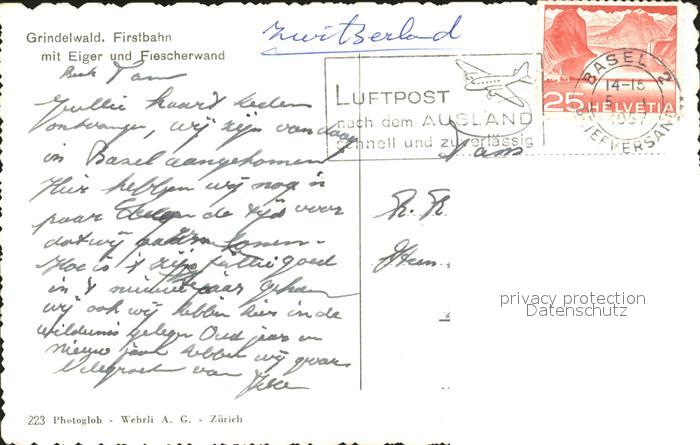 Grindelwald. Firstbahn
mit Eiger und Fiescherwand
Zwitserland
BASEL 2
14-15
BRIEFVERSAND
LUFTPOST
nach dem AUSLAND
schnell und zuverlässig
25 HELVETIA
Jullie kaart heden
ontvangen, wij zijn vandaag
in Basel aangekomen
Hier hebben wij nog 'n
paar dagen de tijd voor
dat wij
Hoe is 't zijn jullie goed
in 't nieuwe jaar
wij ook wij hebben hier in de
wildernis gelegen Oud jaar en
nieuw jaar hebben wij
van
privacy protection
Datenschutz
223 Photoglob - Wehrli A. G. - Zürich